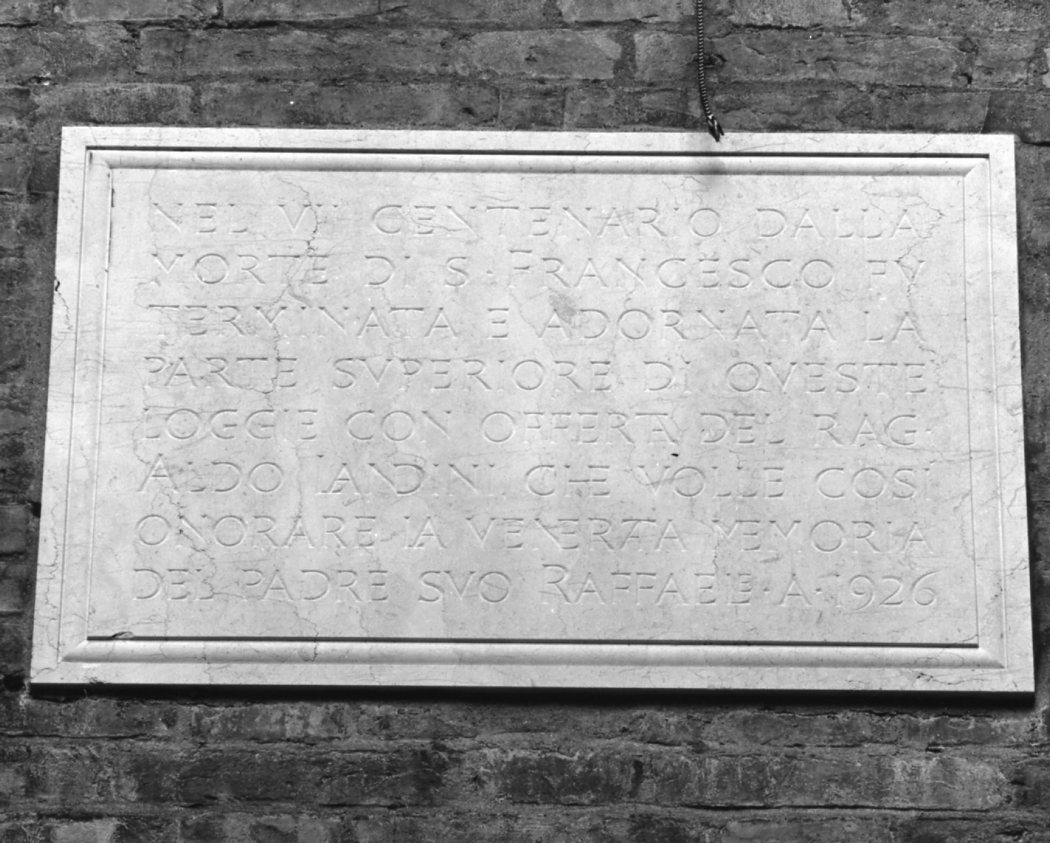 NEL VII CENTENARIO DALLA
MORTE DI S. FRANCESCO FV
TERMINATA E ADORNATA LA
PARTE SVPERIORE DI QVESTE
LOGGIE CON OFFERTA DEL RAG.
ALDO LANDINI CHE VOLLE COSÌ
ONORARE LA VENERATA MEMORIA
DEL PADRE SVO RAFFAELE · A · 1926